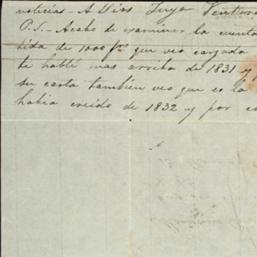 noticias - A Dios Tuyo Ventura
P.S. - Acabo de examinar la cuenta
tida de 1000 frs que veo cargada
te hablé mas arriba de 1831 y
su carta tambien veo que es la
habia creido de 1832 y por e